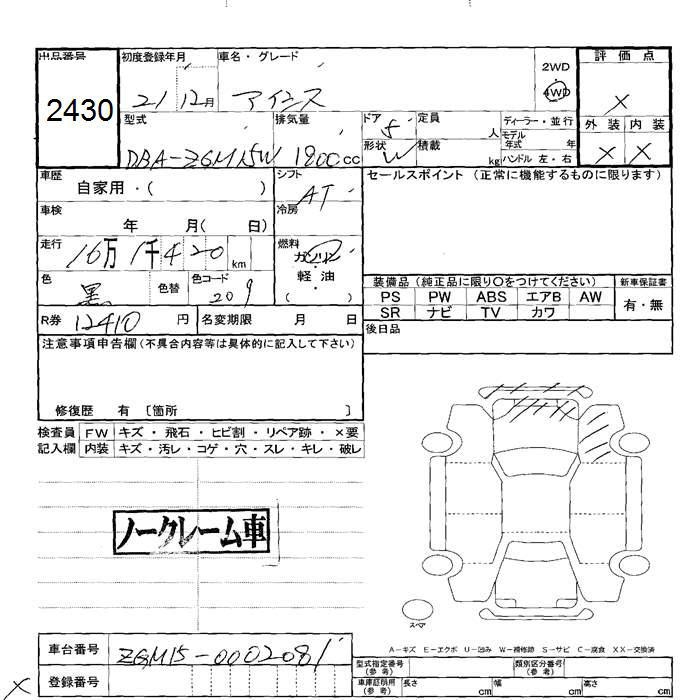 出品番号 初度登録年月 車名・グレード 2WD 評価点
2430 21 12月 アイシス 4WD ×
型式 排気量 ドア 5 定員 人 ディーラー・並行 外装 内装
DBA-ZGM15W 1800cc 形状 W 積載 kg モデル年式 年 × ×
ハンドル 左・右
車歴 自家用・( ) シフト AT セールスポイント (正常に機能するものに限ります)
車検 年 月( 日) 冷房
走行 16万 1千420km 燃料 ガソリン
軽・油
( )
色 黒 色替 色コード 209
装備品 (純正品に限り○をつけてください) 新車保証書
PS PW ABS エアB AW 有・無
SR ナビ TV カワ
R券 12410 円 名変期限 月 日 後日品
注意事項申告欄(不具合内容等は具体的に記入して下さい)
修復歴 有 〔箇所 〕
検査員 FW キズ・飛石・ヒビ割・リペア跡・×要
記入欄 内装 キズ・汚レ・コゲ・穴・スレ・キレ・破レ
ノークレーム車
スペア
A-キズ E-エクボ U-凹み W-補修跡 S-サビ C-腐食 XX-交換済
車台番号 ZGM15-0002081
型式指定番号(参考) 類別区分番号(参考)
× 登録番号
車庫証明用(参考) 長さ cm 幅 cm 高さ cm